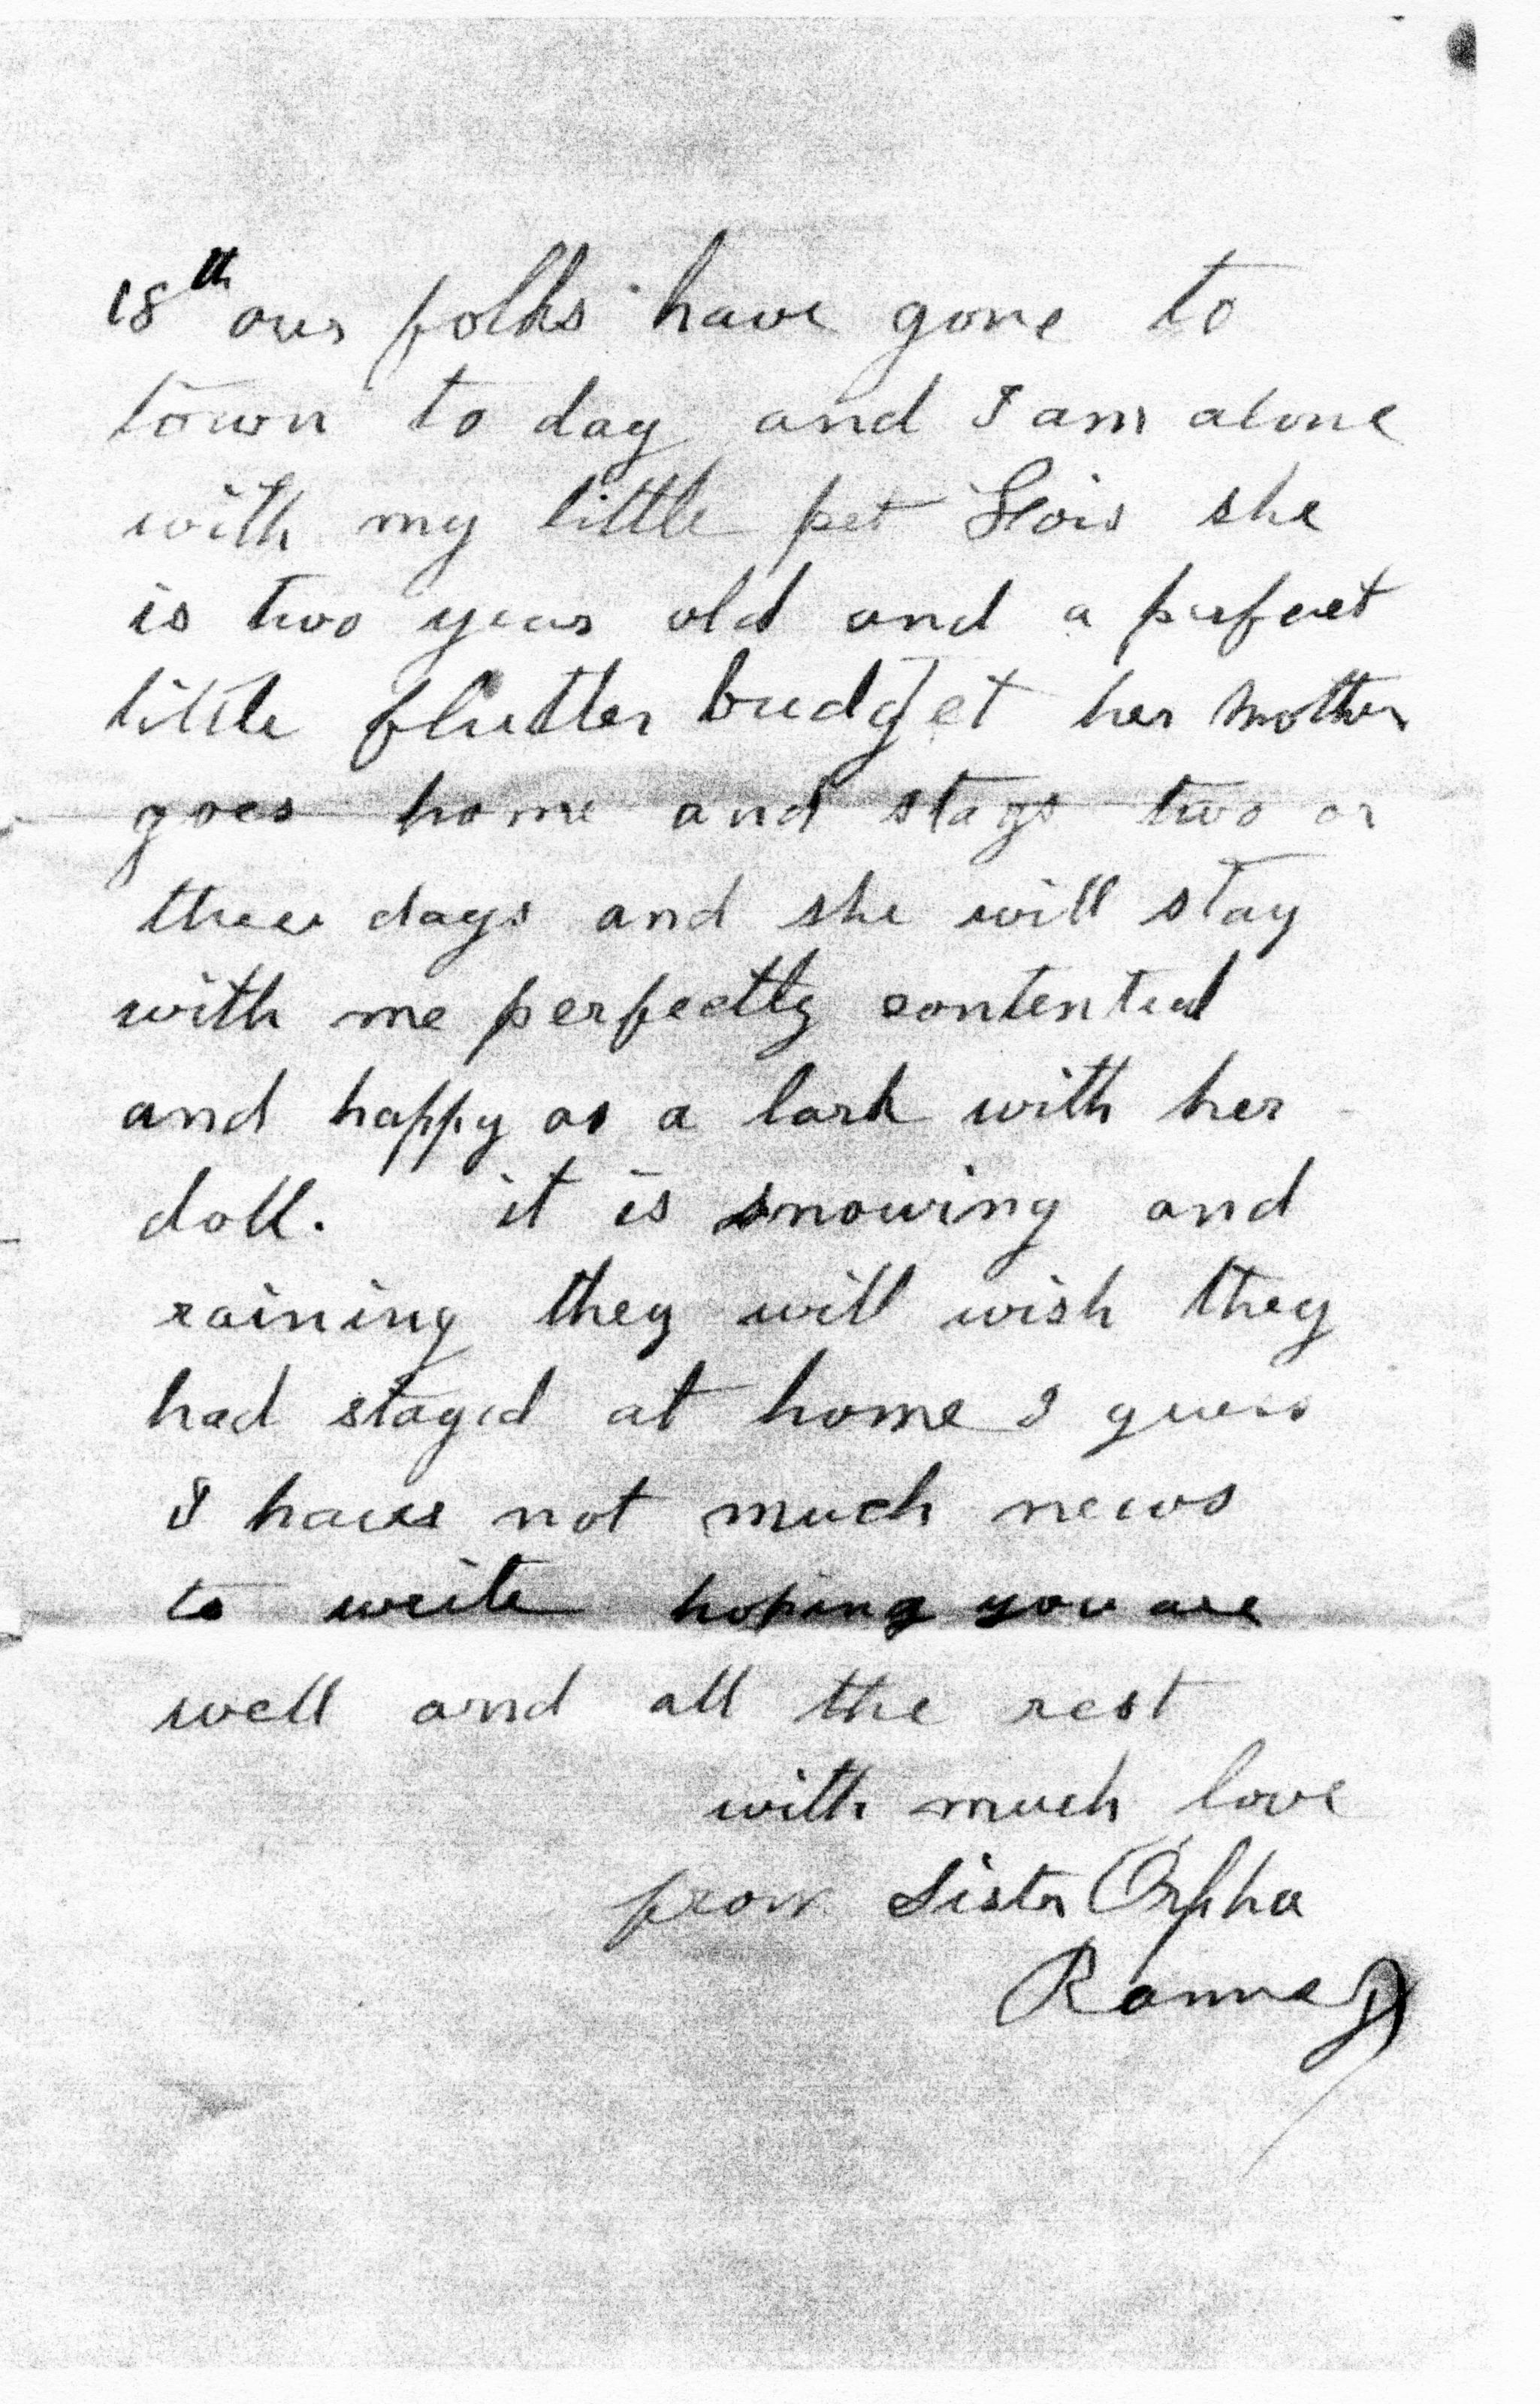 18th our folks have gone to
town to day and I am alone
with my little pet Lois she
is two years old and a perfect
little flutter budget her mother
goes home and stays two or
three days and she will stay
with me perfectly contented
and happy as a lark with her
doll. it is snowing and
raining they will wish they
had stayed at home I guess
I have not much news
to write hoping you are
well and all the rest
with much love
from Sister Orpha
Ranney